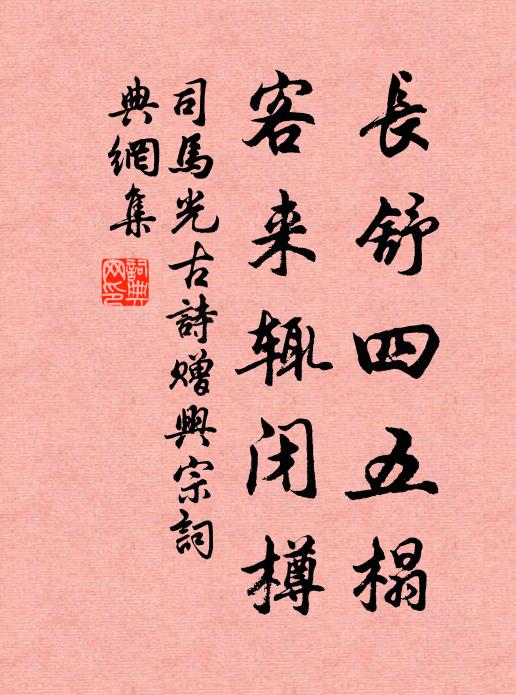 長舒四五榻
客来辄闭樽
司馬光古詩贈興宗詞
典網集
詞典
网印